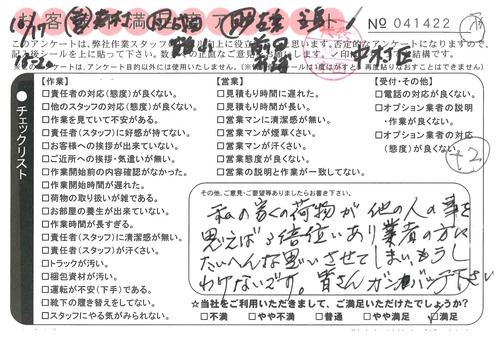 お客様満足度アンケート
No 041422
このアンケートは、弊社作業スタッフ
【作業】
□責任者の対応(態度)が良くない。
□他のスタッフの対応(態度)が良くない。
□作業を見ていて不安がある。
□責任者(スタッフ)に好感が持てない。
□お客様への挨拶が出来ていない。
□ご近所への挨拶・気遣いが無い。
□作業開始前の内容確認がなかった。
□作業開始時間が遅れた。
□荷物の取り扱いが雑である。
□お部屋の養生が出来ていない。
□作業時間が長すぎる。
□責任者(スタッフ)に清潔感が無い。
□責任者(スタッフ)が汗くさい。
□トラックが汚い。
□梱包資材が汚い。
□運転が不安(下手)である。
□靴下の履き替えをしてない。
□スタッフにやる気がみられない。
【営業】
□見積もり時間に遅れた。
□見積もり時間が長い。
□営業マンに清潔感が無い。
□営業マンが煙草くさい。
□営業マンが汗くさい。
□営業態度が良くない。
□営業の説明と作業が一致してない。
【受付・その他】
□電話の対応が良くない。
□オプション業者の説明
・作業が良くない。
□オプション業者の対応
(態度)が良くない。
+2
チェックリスト
その他、ご意見・ご要望等ありましたらお書き下さい。
私の家の荷物が他の人の事を
思えば3倍位いあり業者の方に
たいへんな思いさせてしまいもうし
わけないです。皆さんガンバッテ下さい
☆当社をご利用いただきまして、ご満足いただけたでしょうか?
□不満 □やや不満 □普通 □やや満足 □満足